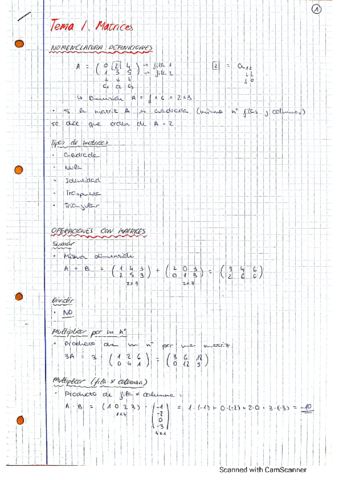 1
Tema 1. Matrices
NOMENCLATURA DEFINICIONES
A = ( 0 2 4 ) → fila 1 2 = a₁₂
( 1 3 5 ) → fila 2
↓ ↓ ↓
C₁ C₂ C₃
↳ Dimensión A = f × c = 2×3
• Si la matriz A es cuadrada (mismo nº filas y columnas)
se dice que orden de A = 2
Tipos de matrices
- Cuadrada
- Nula
- Identidad
- Traspuesta
- Triangular
OPERACIONES CON MATRICES
Sumar
• Misma dimensión
A + B = ( 1 4 3 ) + ( 2 0 3 ) = ( 3 4 6 )
( 2 5 3 ) ( 0 1 3 ) ( 2 6 6 )
2×3 2×3
Dividir
• NO
Multiplicar por un nº
• Producto de un nº por una matriz
3A = 3 · ( 1 2 6 ) = ( 3 6 18 )
( 0 4 1 ) ( 0 12 3 )
Multiplicar (fila × columna)
• Producto de fila × columna:
A · B = ( 1 0 2 3 ) · ( -1 ) = 1·(-1) + 0·(-2) + 2·0 + 3·(-3) = -10
1×4 ( -2 )
( 0 )
( -3 )
4×1
Scanned with CamScanner